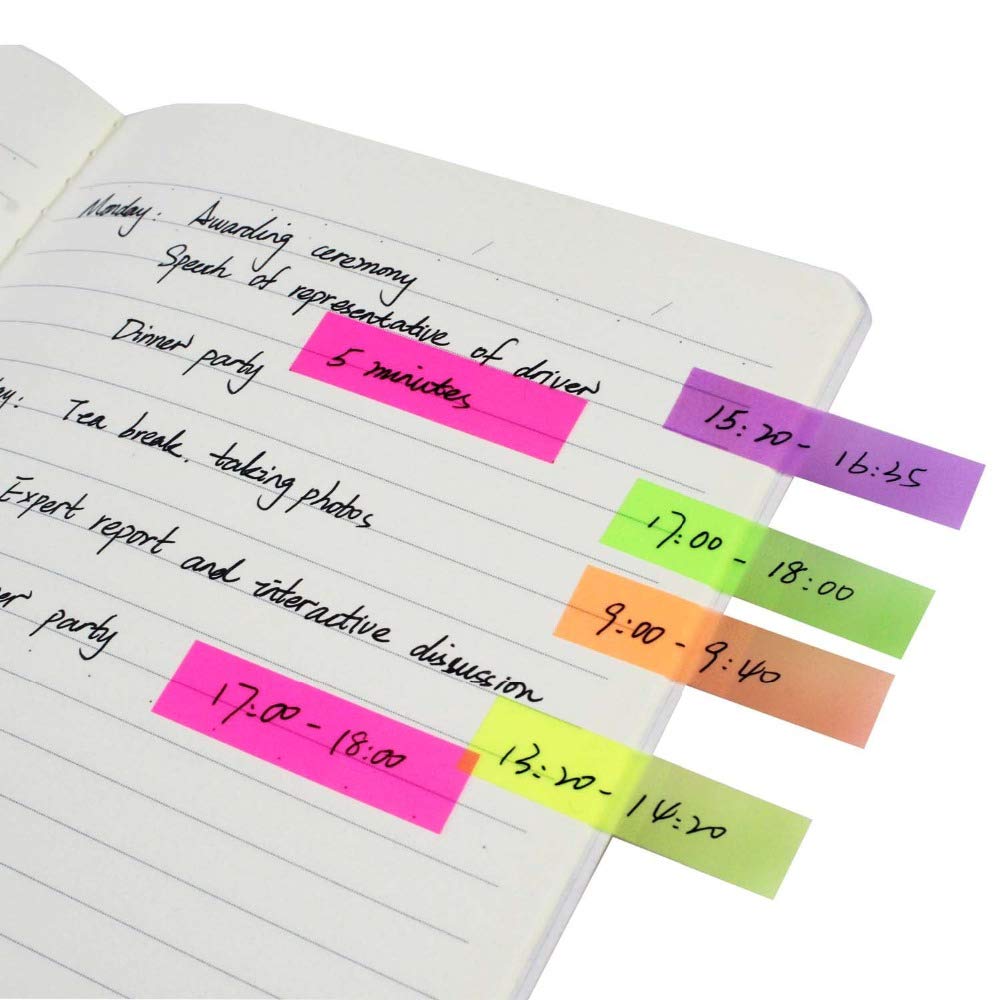 Monday: Awarding ceremony
Speech of representative of driver
15:20 - 16:35
Dinner party 5 minutes
17:00 - 18:00
ay: Tea break. taking photos
9:00 - 9:40
Expert report and interactive discussion
13:20 - 14:20
er party 17:00 - 18:00